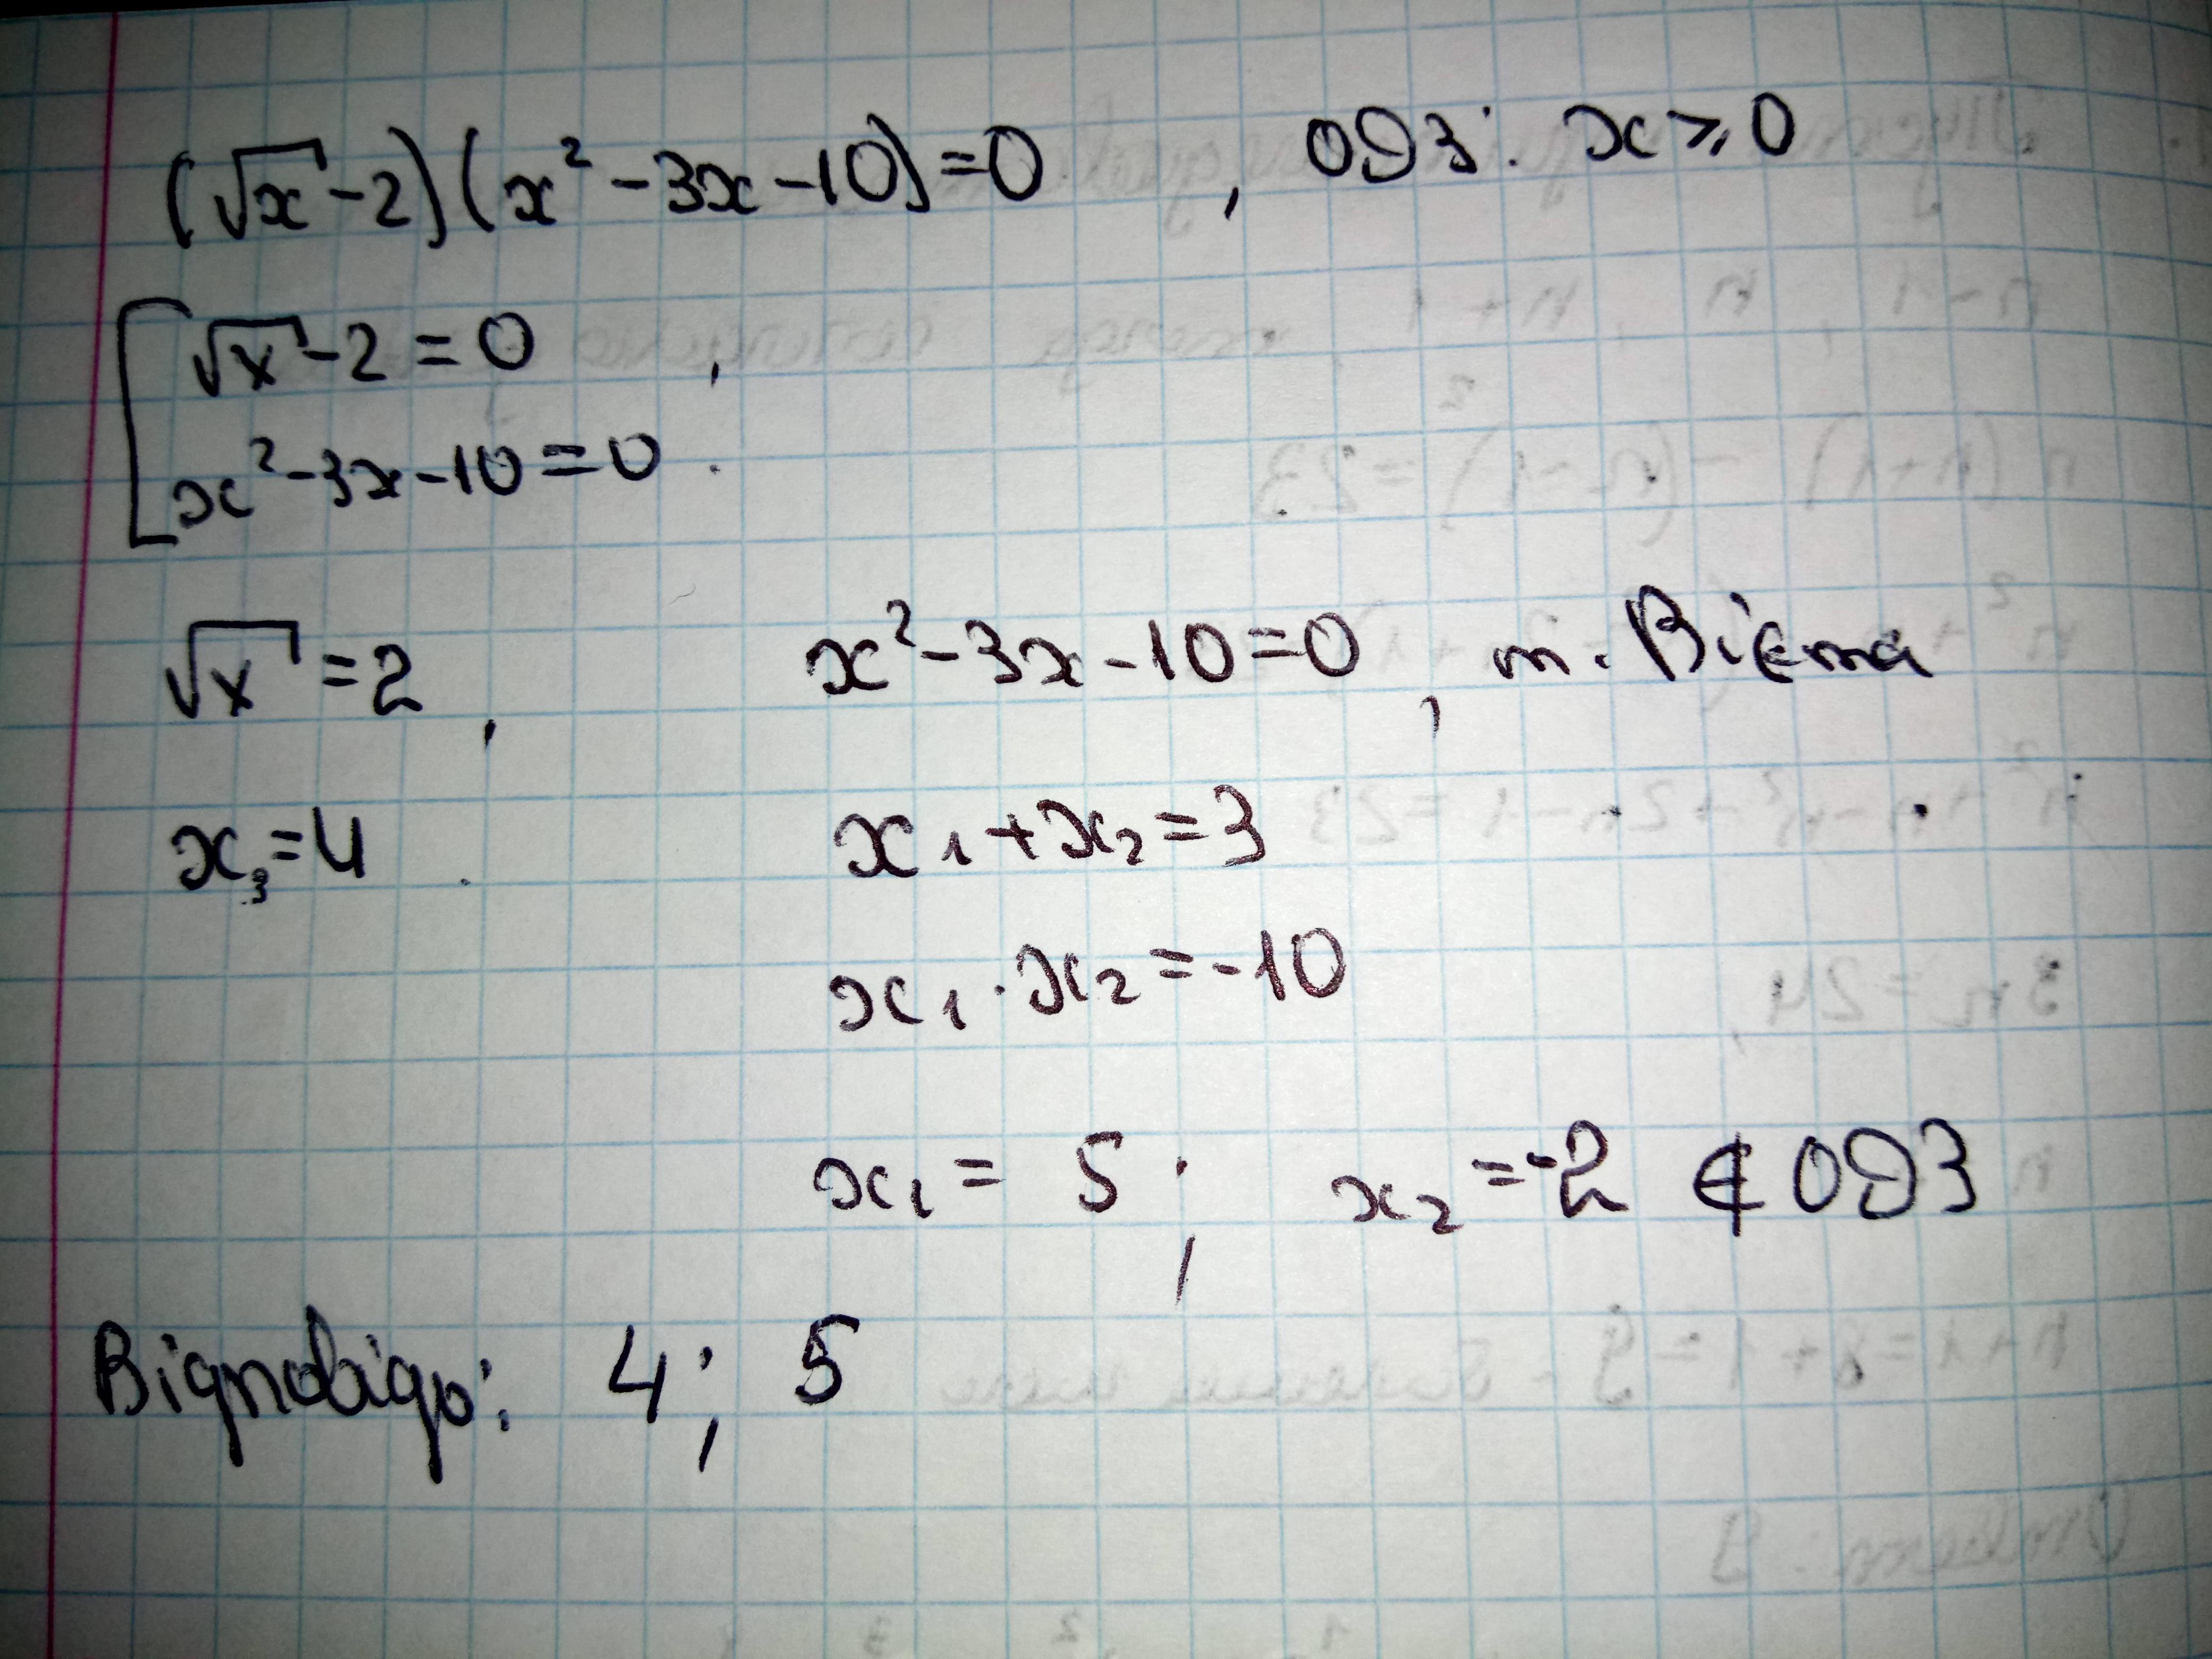 (√x -2)(x² -3x -10)=0 , ОДЗ: x ≥ 0
[ √x -2 = 0 ,
x² -3x -10 = 0 .
√x = 2 , x² -3x -10 = 0 , т. Вієта
x₃ = 4 . x₁ + x₂ = 3
x₁ · x₂ = -10
x₁ = 5 ; x₂ = -2 ∉ ОДЗ
Відповідь: 4; 5